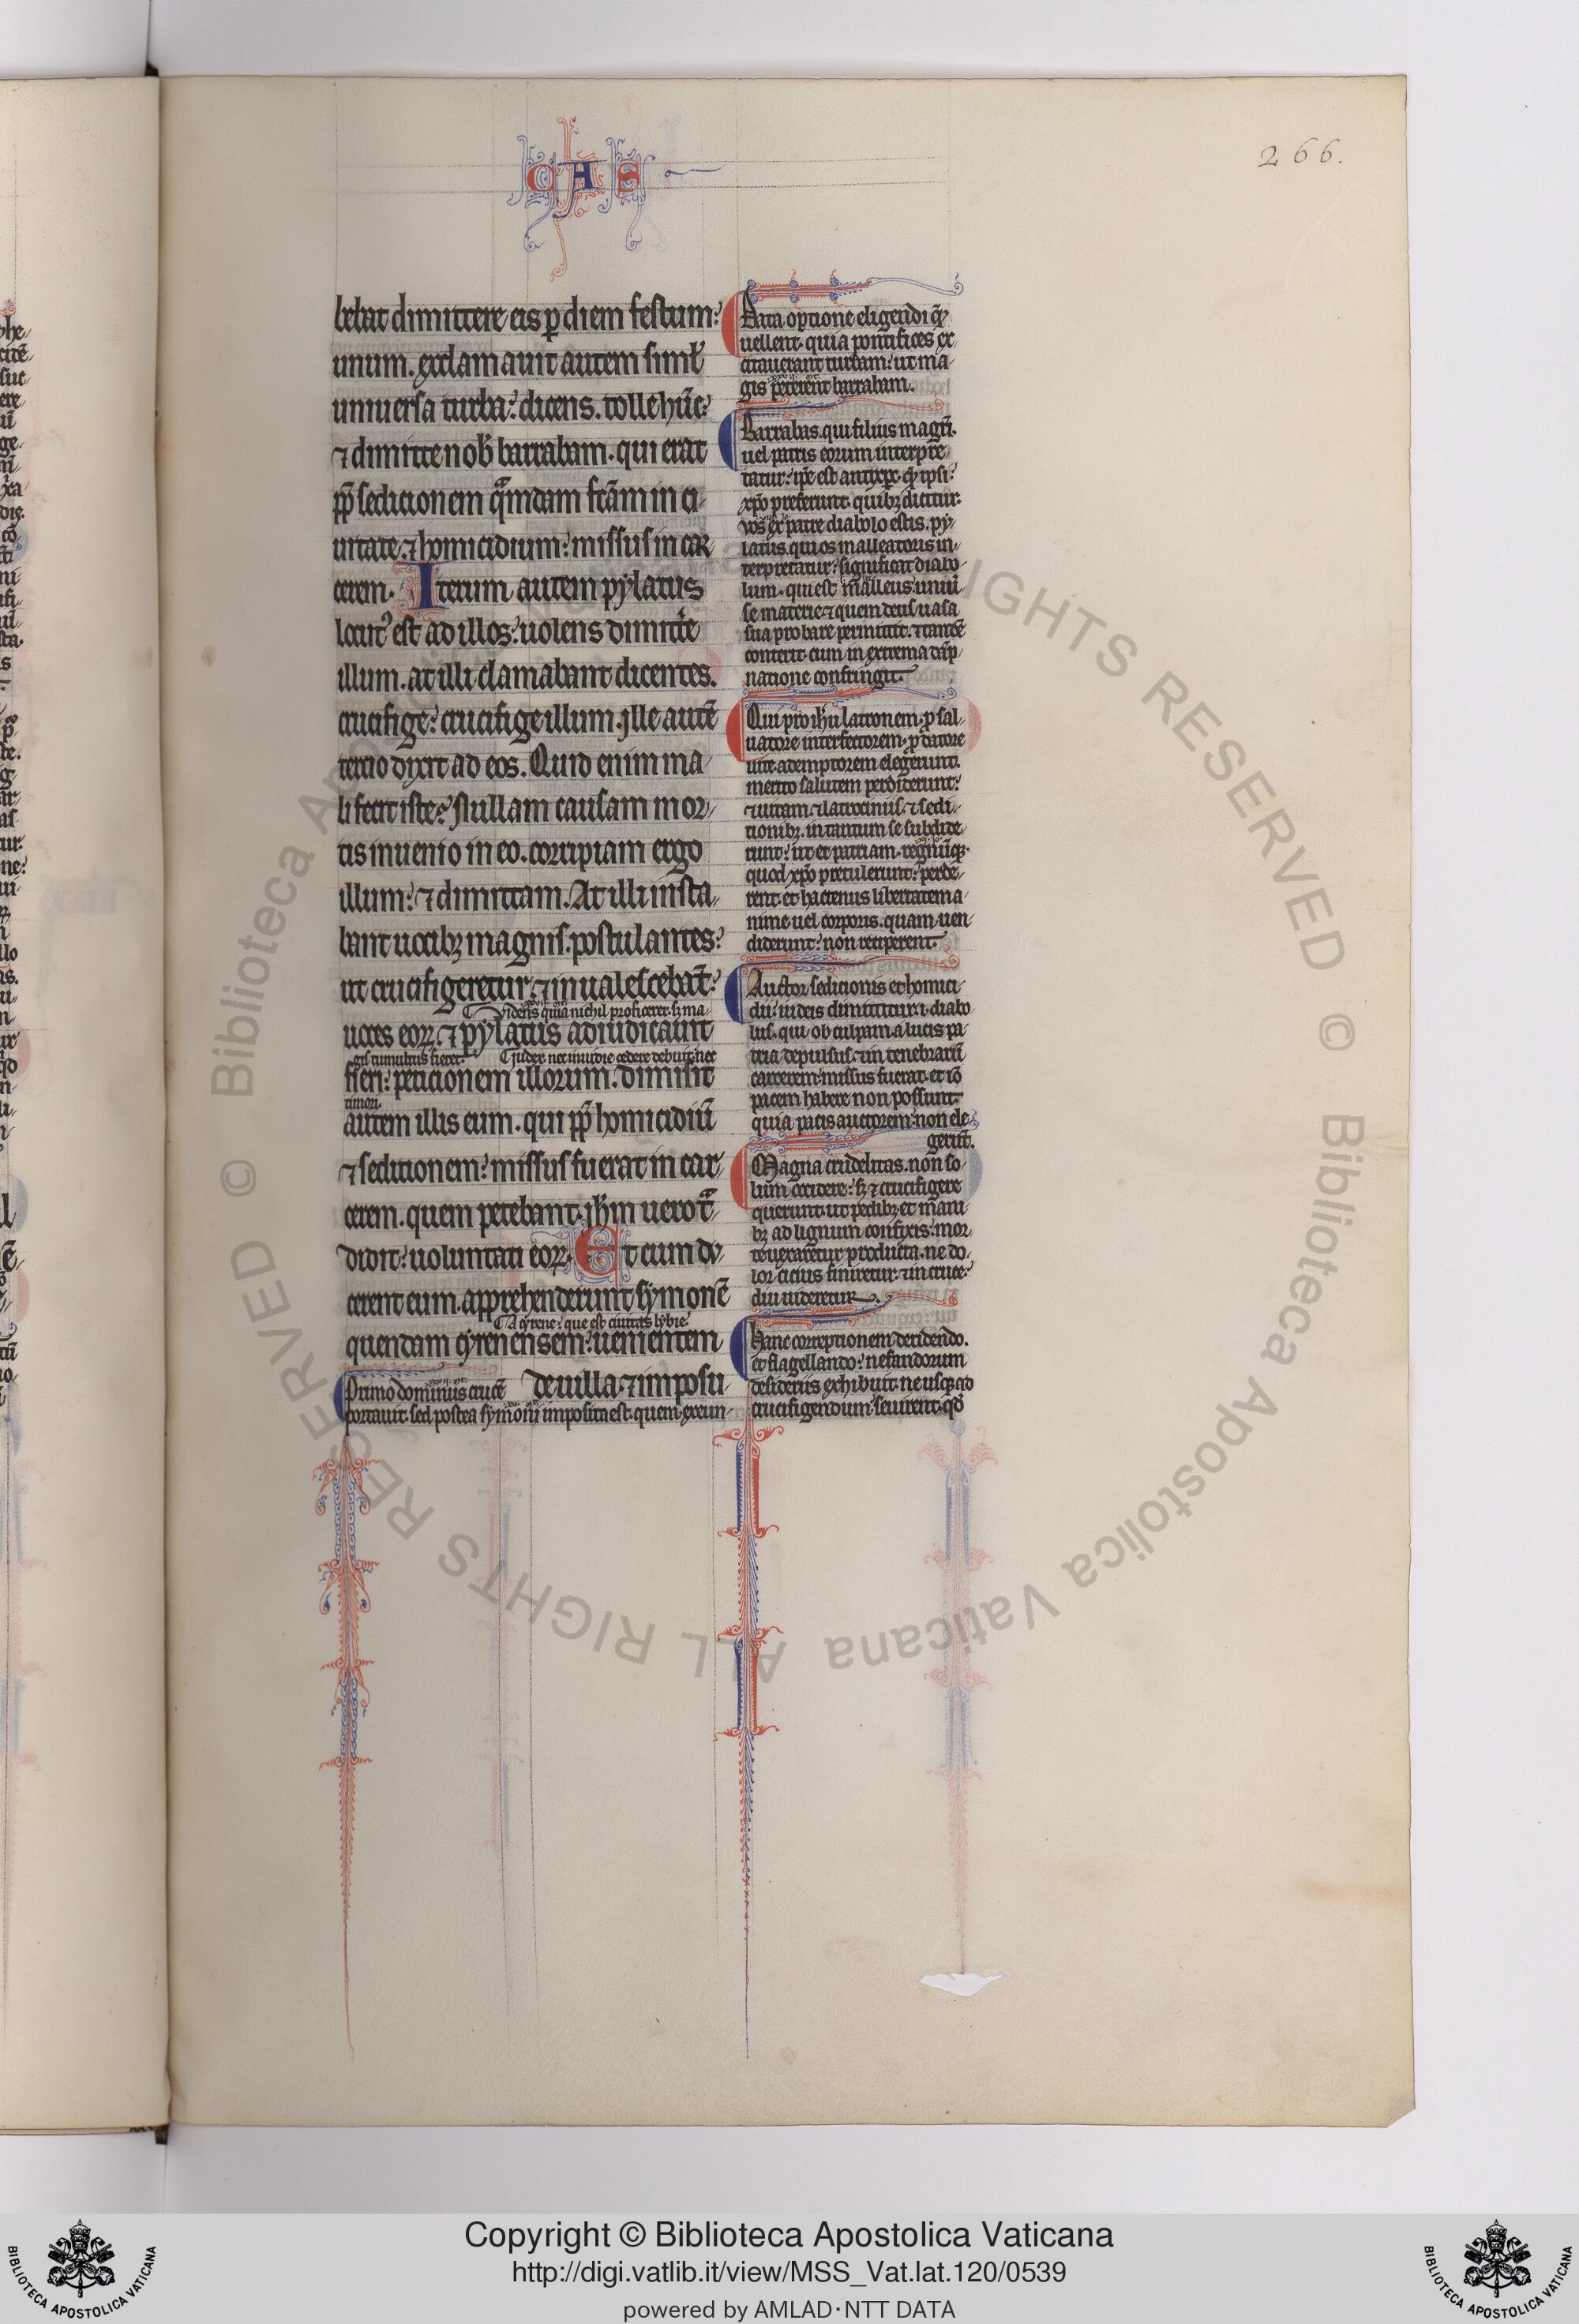 CAS
266.
bebat dimittere eis ꝑ diem festum:
unum. exclamauit autem simł
uniuersa turba: dicens. tolle hūc:
⁊ dimitte nob̛ barrabam. qui erat
ꝓp̄ sedicionem qͣmdam fc̄am in ci-
uitate: ⁊ homicidium: missus in car
cerem. Iterum autem pylatus
locut᾿ est ad illos: uolens dimitte᷑
illum. at illi clamabant dicentes.
crucifige: crucifige illum. ille autē
tercio dixit ad eos. Quid enim ma-
li fecit iste: Nullam causam mor-
tis inuenio in eo. corripiam ergo
illum: ⁊ dimittam. At illi insta-
bant uocibꝫ magnis. postulantes:
ut crucifigeretur. ⁊ inualescebāt:
Videns quia nichil proficeret. sꝫ ma-
uoces eoꝝ. ⁊ pylatus adiudicauit
gis tumultus fieret. Iudex nec inuidie cedere debuit. nec
fieri: peticionem illorum. dimisit
timori.
autem illis eum. qui ꝓp̄ homicidiū
⁊ seditionem: missus fuerat in car
cerem. quem petebant. ihm̄ uero tͣ-
didit: uoluntati eoꝝ. Et cum du-
cerent eum. apprehenderunt symonē
A cyrene: que est ciuitas lybie.
quendam cyrenensem: uenientem
de uilla. ⁊ imposu-
Primo dominus crucē
portauit. sed postea symoni imposita est. quem exeun-
Data optione eligendi quē
uellent. quia pontifices ex
citauerant turbam: ut ma-
gis peterent barrabam.
Barrabas. qui filius magr̄i.
uel patris eorum interpre-
tatur: ip̄e est antixp̄c. quē ipsi:
xp̄o preferunt. quibꝫ dicitur.
uos ex patre diabolo estis. py-
latus. qui os malleatoris in-
terpretatur: significat diabo-
lum. qui est malleus. uniū-
se materie. ⁊ quem deus uasa
sua probare permittit. ⁊ tandē
conterit. cum in extrema dāp-
natione confringit.
Qui pro ihu latronem. ꝓ sal-
uatore interfectorem. ꝓ datore
uite ademptorem elegerunt.
merito salutem perdiderunt:
⁊ uitam. ⁊ latrociniis. ⁊ sedi-
tionibꝫ. in tantum se subdide-
runt: ut et patriam. regnūqꝫ.
quod xp̄o pretulerunt: perde-
rent. et hactenus libertatem a-
nime uel corporis. quam uen-
diderunt: non reciperent.
Auctor sedicionis et homici-
dii: iudeis dimittitur. i. diabo-
lus. qui ob culpam a lucis pa-
tria depulsus. ⁊ in tenebrarū
carcerem missus fuerat. et iō
pacem habere non possunt.
quia pacis auctorem: non ele-
gerūt.
Magna crudelitas. non so-
lum occidere: sꝫ ⁊ crucifigere
querunt. ut pedibꝫ et mani-
bꝫ ad lignum confixis: mor-
te uexarētur producta. ne do-
lor cicius finiretur. ⁊ in cruce:
diu uideretur.
Hanc correptionem deridendo.
et flagellando: nefandorum
desideriis exhibuit. ne usqꝫ ad
crucifigendum seuirent. qđ
Copyright © Biblioteca Apostolica Vaticana
http://digi.vatlib.it/view/MSS_Vat.lat.120/0539
powered by AMLAD·NTT DATA
BIBLIOTECA APOSTOLICA VATICANA
BIBLIOTECA APOSTOLICA VATICANA
© Biblioteca Apostolica Vaticana ALL RIGHTS RESERVED